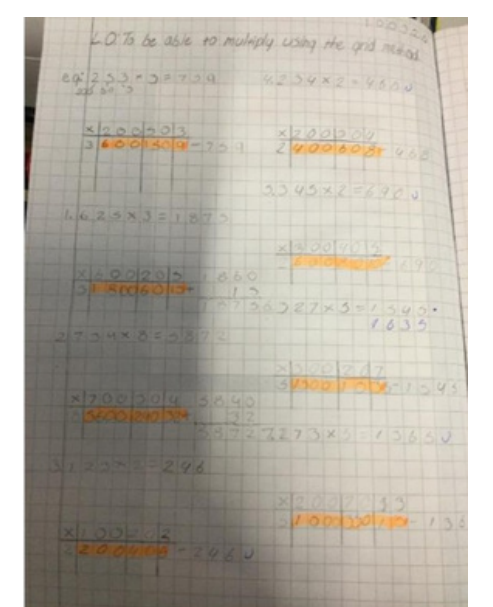 L.O: To be able to multiply using the grid method.
eg: 253 × 3 = 759
200 50 3
× 200 50 3
3 600 150 9 = 759
1. 625 × 3 = 1875
× 600 20 5
3 1800 60 15
1860
15
1875
2. 734 × 8 = 5872
× 700 30 4
5600 240 32
5840
32
5872
3. 123 × 2 = 246
× 100
2 200 = 246
4. 234 × 2 = 468
× 200 30 4
2 400 60 8 = 468
5. 345 × 2 = 690
× 300 40 5
690
6. 327 × 5 = 1545
1635
× 300 7
5 1500 = 1545
7. 273 × 5 = 1365
× 200
5 1000